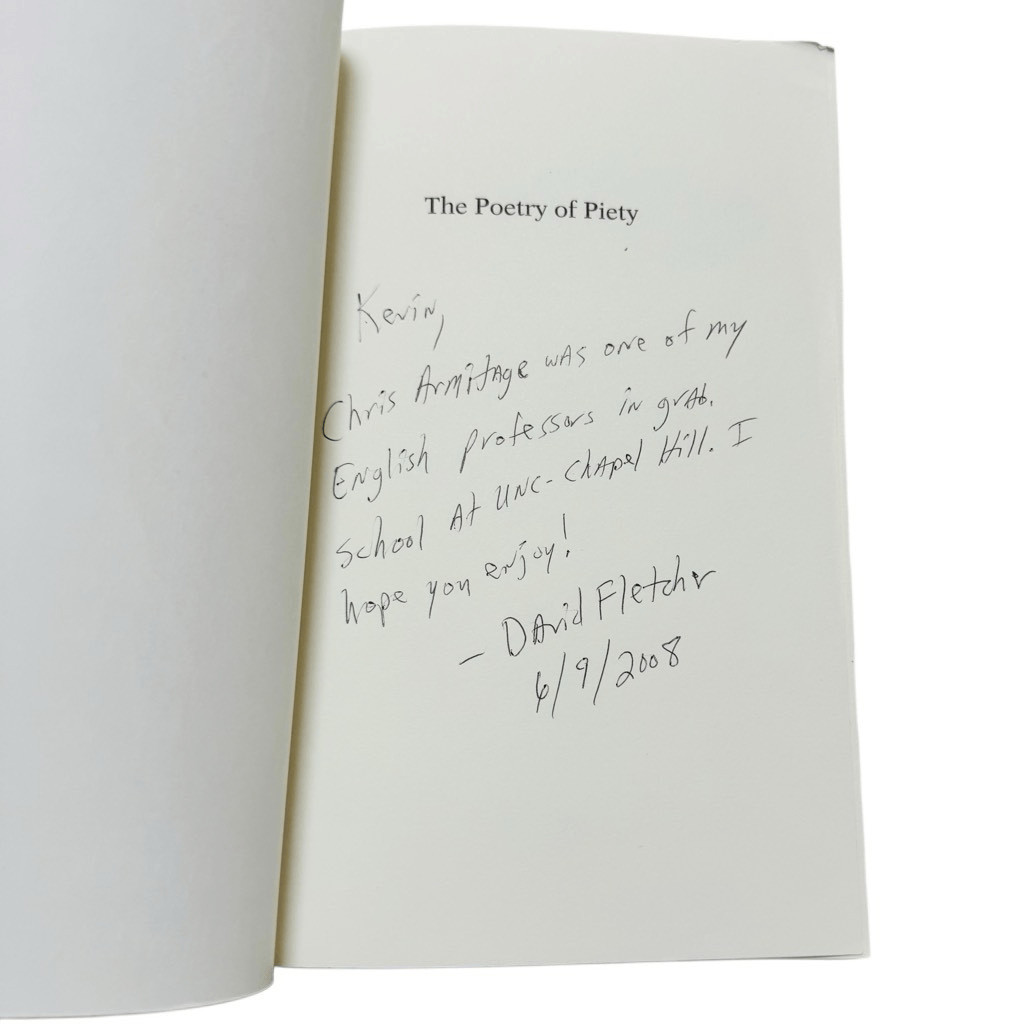 The Poetry of Piety
Kevin,
Chris Armitage was one of my
English professors in grad.
school at UNC-Chapel Hill. I
hope you enjoy!
- David Fletcher
6/9/2008